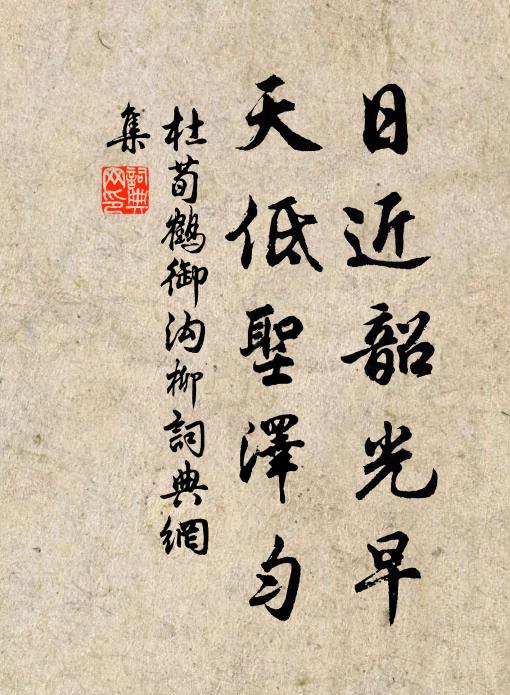 日近韶光早
天低聖澤勻
杜荀鶴御沟柳詞典網
集
詞典
网印